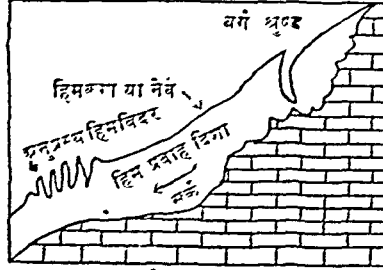 वर्ग श्रुण्ड
हिमकरा या नेवे
अनुप्रस्थ हिमविदर
हिम प्रवाह दिशा
सर्क